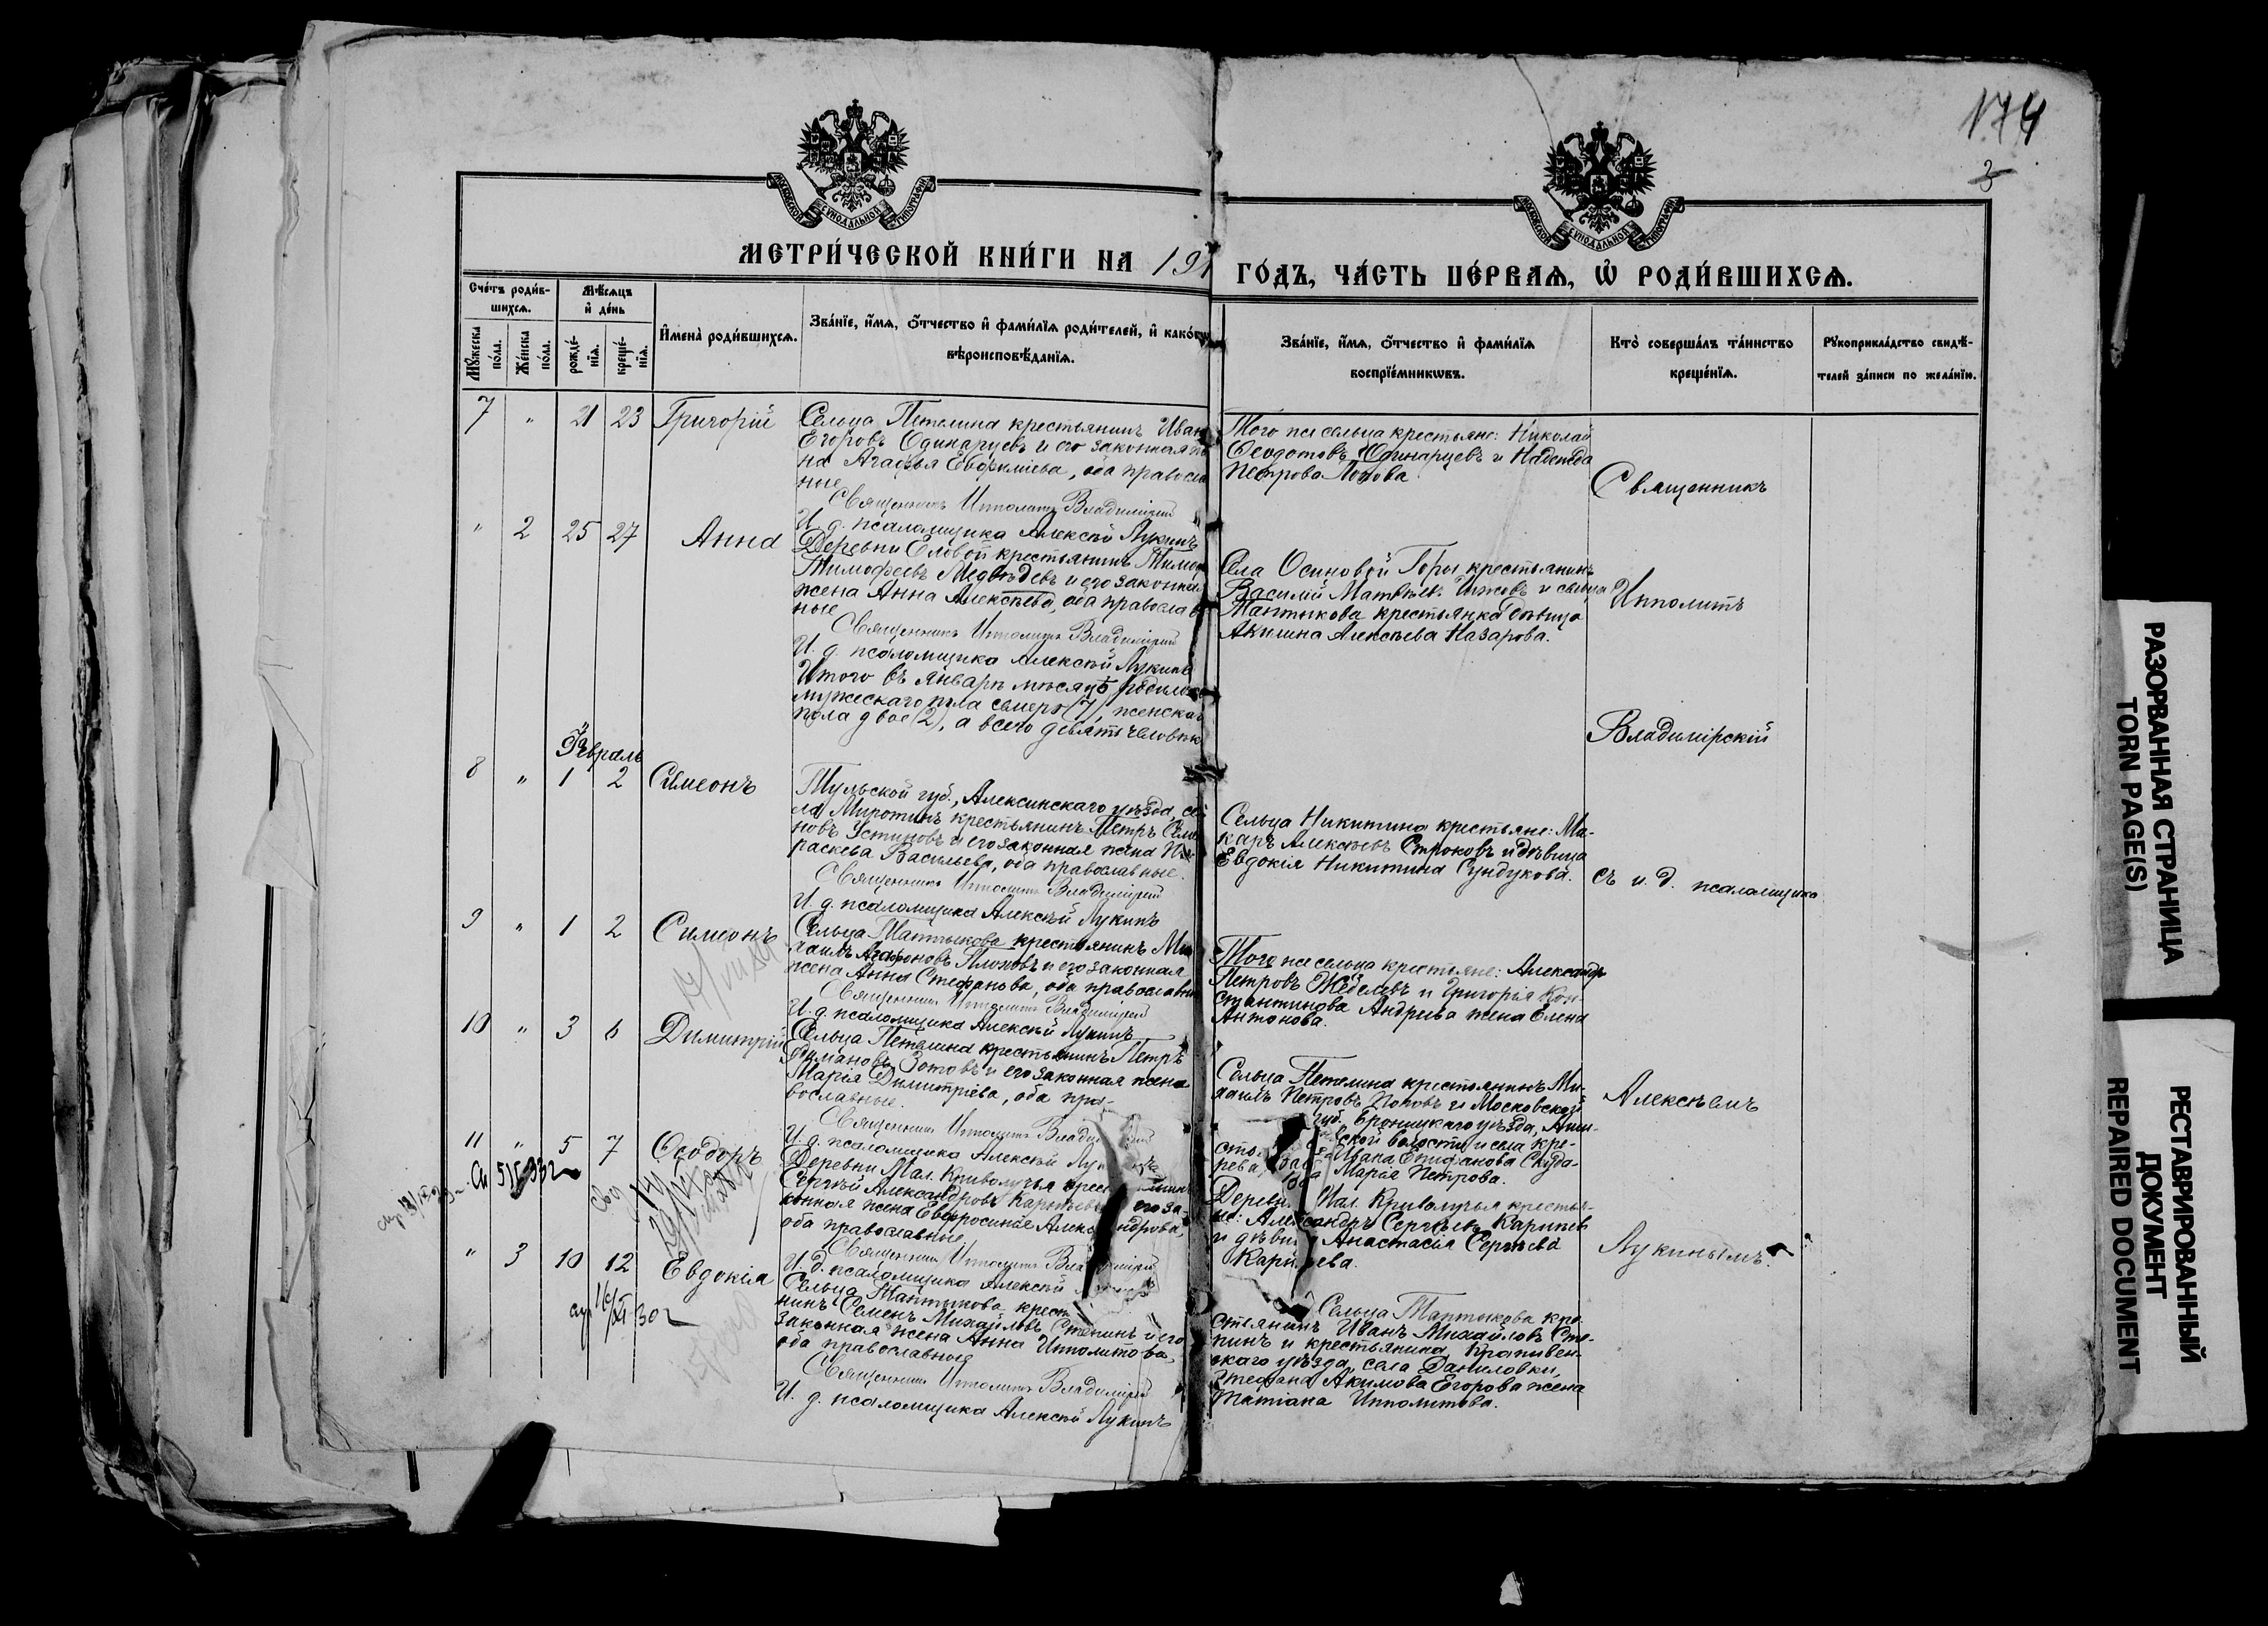 174
3
МОСКОВСКОЙ СУНОДАЛЬНОЙ ТИПОГРАФІИ
МОСКОВСКОЙ СУНОДАЛЬНОЙ ТИПОГРАФІИ
МЕТРИ́ЧЕСКОЙ КНИ́ГИ НА 191
ГО́ДЪ, ЧА́СТЬ ПЕ́РВАѦ, Ѡ҆ РОДИ́ВШИХСѦ.
Сче́тъ роди́в-
шихсѧ.
Мѣ́сѧцъ
и҆ де́нь
Мꙋ́жеска по́ла.
Же́нска по́ла.
рожде́-
нїѧ.
креще́-
нїѧ.
И҆мена̀ роди́вшихсѧ.
Зва́нїе, и҆́мѧ, ѻ҆́тчество и҆ фами́лїѧ роди́телей, и҆ како́гѡ
вѣроисповѣ́данїѧ.
Зва́нїе, и҆́мѧ, ѻ҆́тчество и҆ фами́лїѧ
воспрїе́мникѡвъ.
Кто̀ соверша́лъ та́инство
креще́нїѧ.
Рꙋкоприкла́дство свидѣ́-
телей за́писи по жела́нїю.
7 " 21 23 Григорій
Сельца Петелина крестьянинъ Иван
Егоровъ Одинарцевъ и его законная
на Агафья Евфиміева, оба правосла
ные
Священникъ Ипполитъ Владимірскій
И. д. псаломщика Алексѣй Лукинъ
Того же сельца крестьяне: Николай
Ѳеодотовъ Одинарцевъ и Надежда
Петрова Попова.
Священникъ
" 2 25 27 Анна
Деревни Еловой крестьянинъ
Тимофеевъ Медвѣдевъ и его законная
жена Анна Алексѣева, оба правослaв
ные
Священникъ Ипполитъ Владимірскій
И. д. псаломщика Алексѣй Лукинъ
Села Осиновой Горы крестьянинъ
Василій Матвѣев. и сельца
Маптыкова крестьянка дѣвица
Акилина Алексѣева Назарова.
Ипполитъ
Итого въ январѣ мѣсяцѣ родилось
мужескаго пола семеро (7), женска
пола двое (2), а всего девять человѣк
Владимірскій
Февраль
8 " 1 2 Симеонъ
Тульской губ., Алексинскаго уѣзда, се
ла Миротинъ крестьянинъ Петръ Симе
новъ Устиновъ и его законная жена Па
раскева Васильева, оба православные.
Священникъ Ипполитъ Владимірскій
И. д. псаломщика Алексѣй Лукинъ
Сельца Никитина крестьяне: Ма-
каръ Алексѣевъ Строковъ и дѣвица
Евдокія Никитина Сундукова.
съ и. д. псаломщика
9 " 1 2 Симеонъ
Сельца Маптыкова крестьянинъ Ми
хаилъ Агафоновъ и его законная
жена Анна Стефанова, оба православн
Священникъ Ипполитъ Владимірскій
И. д. псаломщика Алексѣй Лукинъ
Того же сельца крестьяне: Александръ
Петровъ и Григорія Кон-
стантинова Андреева жена Елена
Антонова.
10 " 3 6 Димитрій
Сельца Петелина крестьянинъ Петръ
Романовъ Зотовъ и его законная жена
Марія Димитріева, оба пра-
вославные.
Священникъ Ипполитъ Влад
И. д. псаломщика Алексѣй
Сельца Петелина крестьянинъ Ми-
хаилъ Петровъ Поповъ и Московской
губ. Бронницкаго уѣзда,
ской волости и села кре-
Ивана Епифанова Скуда-
рева Марія Петрова.
Алексѣемъ
11 " 5 7 Ѳеодоръ
Деревни Мал. Криволучья крес
Сергѣй Александровъ его за-
конная жена Евфросинія Алек ндрова,
оба православные.
Священникъ Ипполитъ
И. д. псаломщика Алексѣй
Дерев Мал. Криволучья крестья-
не: Александръ Сергѣев.
и дѣви Анастасія Сергѣева
Лукинымъ.
" 3 10 12 Евдокія
Сельца Маптыкова крест
нинъ Семенъ Михайловъ Степинъ и его
законная жена Анна Ипполитова,
оба православные
Священникъ Ипполитъ Владимірскій
И. д. псаломщика Алексѣй Лукинъ
Сельца Маптыкова кре-
стьянинъ Иванъ Михайловъ Сте-
пинъ и крестьянина Крапивен-
скаго уѣзда, села Даниловки,
Стефана Акимова Егорова жена
Татіана Ипполитова.
РАЗОРВАННАЯ СТРАНИЦА
TORN PAGE(S)
РЕСТАВРИРОВАННЫЙ
ДОКУМЕНТ
REPAIRED DOCUMENT